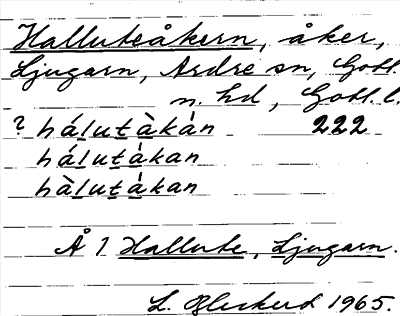 Halluteåkern, åker,
Ljugarn, Ardre sn, Gotl.
n. hd, Gotl. l.
? hálutàkàn 222
hálutákan
hàlutákan
Å 1 Hallute, Ljugarn.
L. 1965.